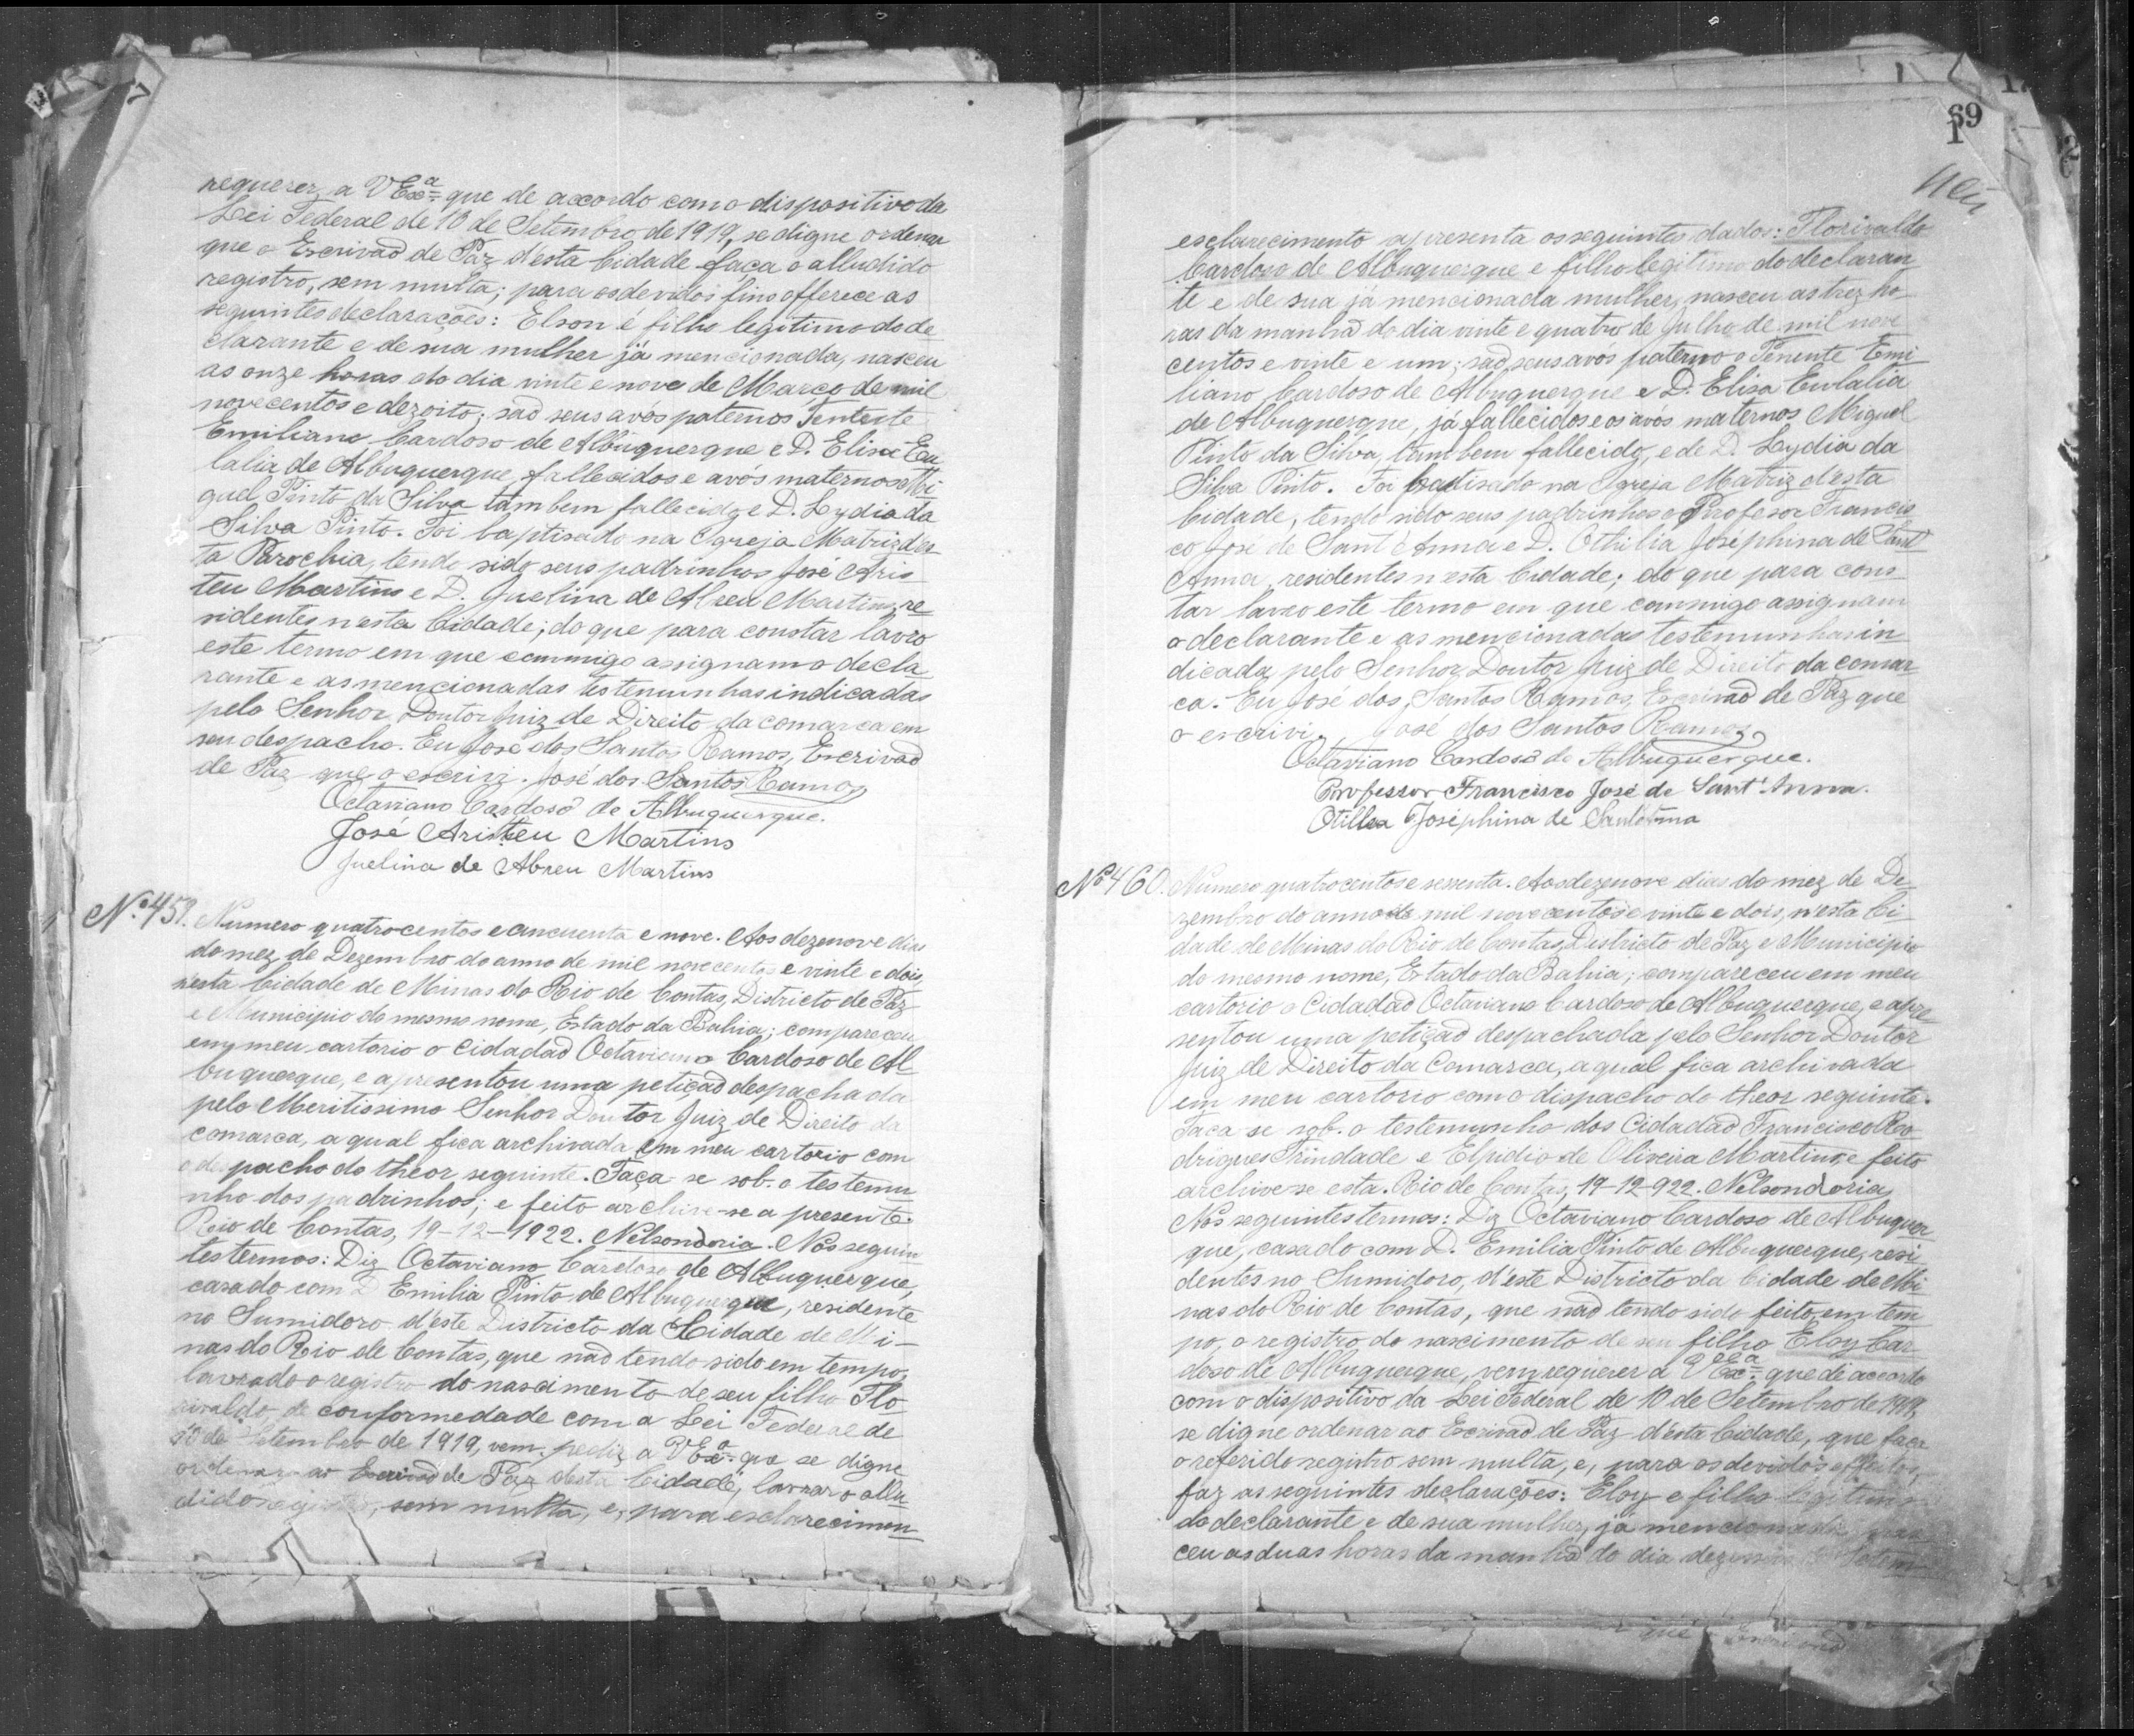 requerer a VExª que de accordo com o dispositivo da
Lei Federal de 10 de Setembro de 1919, se digne ordenar
que o Escrivaõ de Paz d'esta Cidade faça o alludido
registro, sem multa; para os devidos fins offerece as
seguintes declarações: Elson é filho legitimo do de
clarante e de sua mulher já mencionada, nasceu
as onze horas do dia vinte e nove de Março de mil
novecentos e dezoito; saõ seus avós paternos Tenente
Emiliano Cardoso de Albuquerque e D. Elisa Eu
lalia de Albuquerque, fallecidos e avós maternos Mi
guel Pinto da Silva tambem fallecido, e D. Lydia da
Silva Pinto. Foi baptisado na Igreja Matriz d'es
ta Parochia, tendo sido seus padrinhos José Aris
teu Martins e D. Juelina de Abreu Martins, re
sidentes n'esta Cidade; do que para constar lavro
este termo em que commigo assignam o decla
rante e as mencionadas testemunhas indicadas
pelo Senhor Doutor Juiz de Direito da comarca em
seu despacho. Eu José dos Santos Ramos, Escrivaõ
de Paz que o escrivi. José dos Santos Ramos
Octaviano Cardoso de Albuquerque.
José Aristeu Martins
Juelina de Abreu Martins
Nº 459. Numero quatrocentos e cincuenta e nove. Aos dezenove dias
do mez de Dezembro do anno de mil novecentos e vinte e dois,
n'esta Cidade de Minas do Rio de Contas, Districto de Paz
e Municipio do mesmo nome, Estado da Bahia; compareceu
em meu cartorio o Cidadaõ Octaviano Cardoso de Al
buquerque, e apresentou uma petiçaõ despachada
pelo Meritissimo Senhor Doutor Juiz de Direito da
comarca, a qual fica archivada em meu cartorio com
o despacho do theor seguinte. Faça-se sob. o testemu
nho dos padrinhos; e feito archive-se a presente.
Rio de Contas, 19-12-1922. Nelson doria. Nos seguin
tes termos: Diz Octaviano Cardoso de Albuquerque,
casado com D Emilia Pinto de Albuquerque, residente
no Sumidoro d'éste Districto da Cidade de Mi-
nas do Rio de Contas, que naõ tendo sido em tempo,
lavrado o registro do nascimento de seu filho Flo
rivaldo, de conformedade com a Lei Federal de
10 de Setembro de 1919, vem pedir a VExª que se digne
ordenar ao Escrivaõ de Paz desta Cidade, lavrar o allu
dido registro, sem multa, e, para esclarecimen
69
1
esclarecimento apresenta os seguintes dados: Florivaldo
Cardoso de Albuquerque e filho legitimo do declaran
te e de sua já mencionada mulher, nasceu as trez ho
ras da manhã do dia vinte e quatro de Julho de mil nove
centos e vinte e um; saõ seus avós paterno o Tenente Emi
liano Cardoso de Albuquerque e D. Elisa Eulalia
de Albuquerque, já fallecidos e os avós maternos Miguel
Pinto da Silva, tambem fallecido, e de D. Lydia da
Silva Pinto. Foi baptisado na Igreja Matriz d'esta
Cidade, tendo sido seus padrinhos o Professor Francis
co José de Sant'Anna e D. Othilia Josephina de Sant'
Anna, residentes n'esta Cidade; do que para cons
tar lavro este termo em que commigo assignam
o declarante e as mencionadas testemunhas in
dicada pelo Senhor Doutor Juiz de Direito da comar
ca. Eu José dos Santos Ramos, Escrivaõ de Paz que
o escrivi. José dos Santos Ramos
Octaviano Cardoso de Albuquerque.
Professor Francisco José de Sant'Anna.
Otillea Josephina de Sant'Anna
Nº 460. Numero quatrocentos e sessenta. Aos dezenove dias do mez de De
zembro do anno de mil novecentos e vinte e dois, n'esta Ci
dade de Minas do Rio de Contas, Districto de Paz e Municipio
do mesmo nome, Estado da Bahia; compareceu em meu
cartorio o Cidadaõ Octaviano Cardoso de Albuquerque, e apre
sentou uma petiçaõ despachada pelo Senhor Doutor
Juiz de Direito da Comarca, a qual fica archivada
em meu cartorio com o dispacho do theor seguinte.
Faça se sob. o testemunho dos Cidadaõ Francisco Ro
drigues Trindade e Elpidio de Oliveira Martins, e feito
archive-se esta. Rio de Contas, 19-12-922. Nelson doria,
Nos seguintes termos: Diz Octaviano Cardoso de Albuquer
que, casado com D. Emilia Pinto de Albuquerque, resi
dentes no Sumidoro, d'éste Districto da Cidade de Mi
nas do Rio de Contas, que naõ tendo sido feito, em tem
po, o registro do nascimento de seu filho Eloy Car
doso de Albuquerque, vem requerer a VExª que de accordo
com o dispositivo da Lei Federal de 10 de Setembro de 1919,
se digne ordenar ao Escrivaõ de Paz d'ésta Cidade, que faça
o referido registro sem multa, e, para os devidos effeitos,
faz as seguintes declarações: Eloy e filho legitimo
do declarante e de sua mulher, já mencionada, nas
ceu as duas horas da manhã do dia de Setem